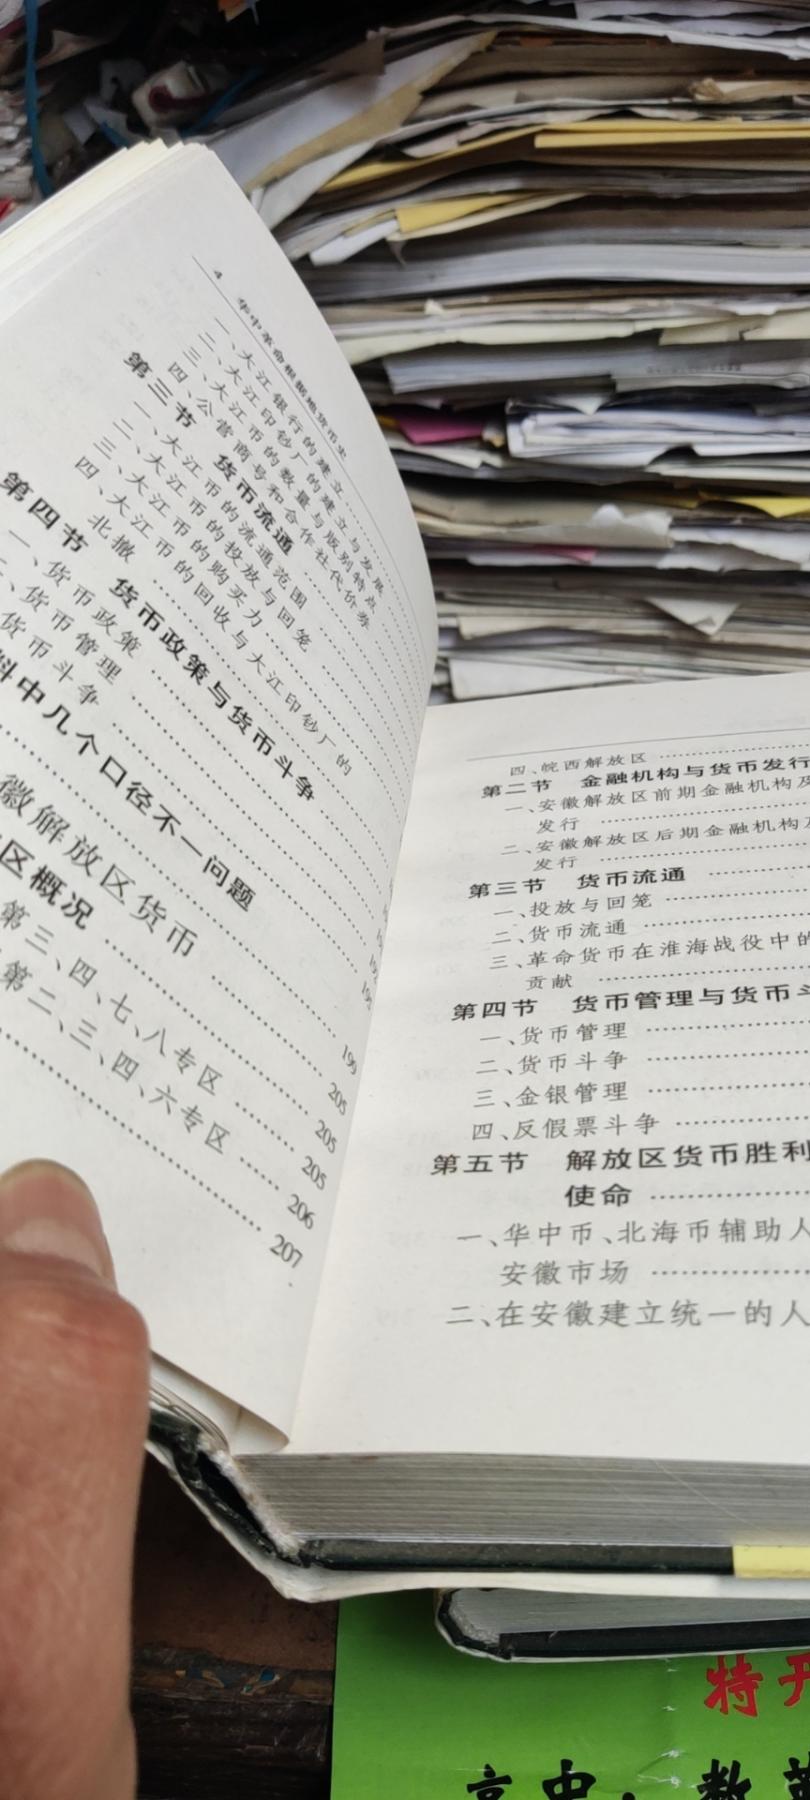 4 华中革命根据地货币史
一、大江银行的建立
二、大江印钞厂的建立与发展
三、大江币的数量与版别特点
四、公营商号和合作社代价券
第三节 货币流通
一、大江币的流通范围
二、大江币的投放与回笼
三、大江币的购买力
四、大江币的回收与大江印钞厂的
北撤
第四节 货币政策与货币斗争
一、货币政策
二、货币管理
货币斗争
料中几个口径不一问题 199
徽解放区货币 205
区概况 205
第三、四、七、八专区 205
第二、三、四、六专区 206
207
四、皖西解放区
第二节 金融机构与货币发行
一、安徽解放区前期金融机构及
发行
二、安徽解放区后期金融机构及
发行
第三节 货币流通
一、投放与回笼
二、货币流通
三、革命货币在淮海战役中的
贡献
第四节 货币管理与货币斗
一、货币管理
二、货币斗争
三、金银管理
四、反假票斗争
第五节 解放区货币胜利
使命
一、华中币、北海币辅助人
安徽市场
二、在安徽建立统一的人
特开
高中:数英